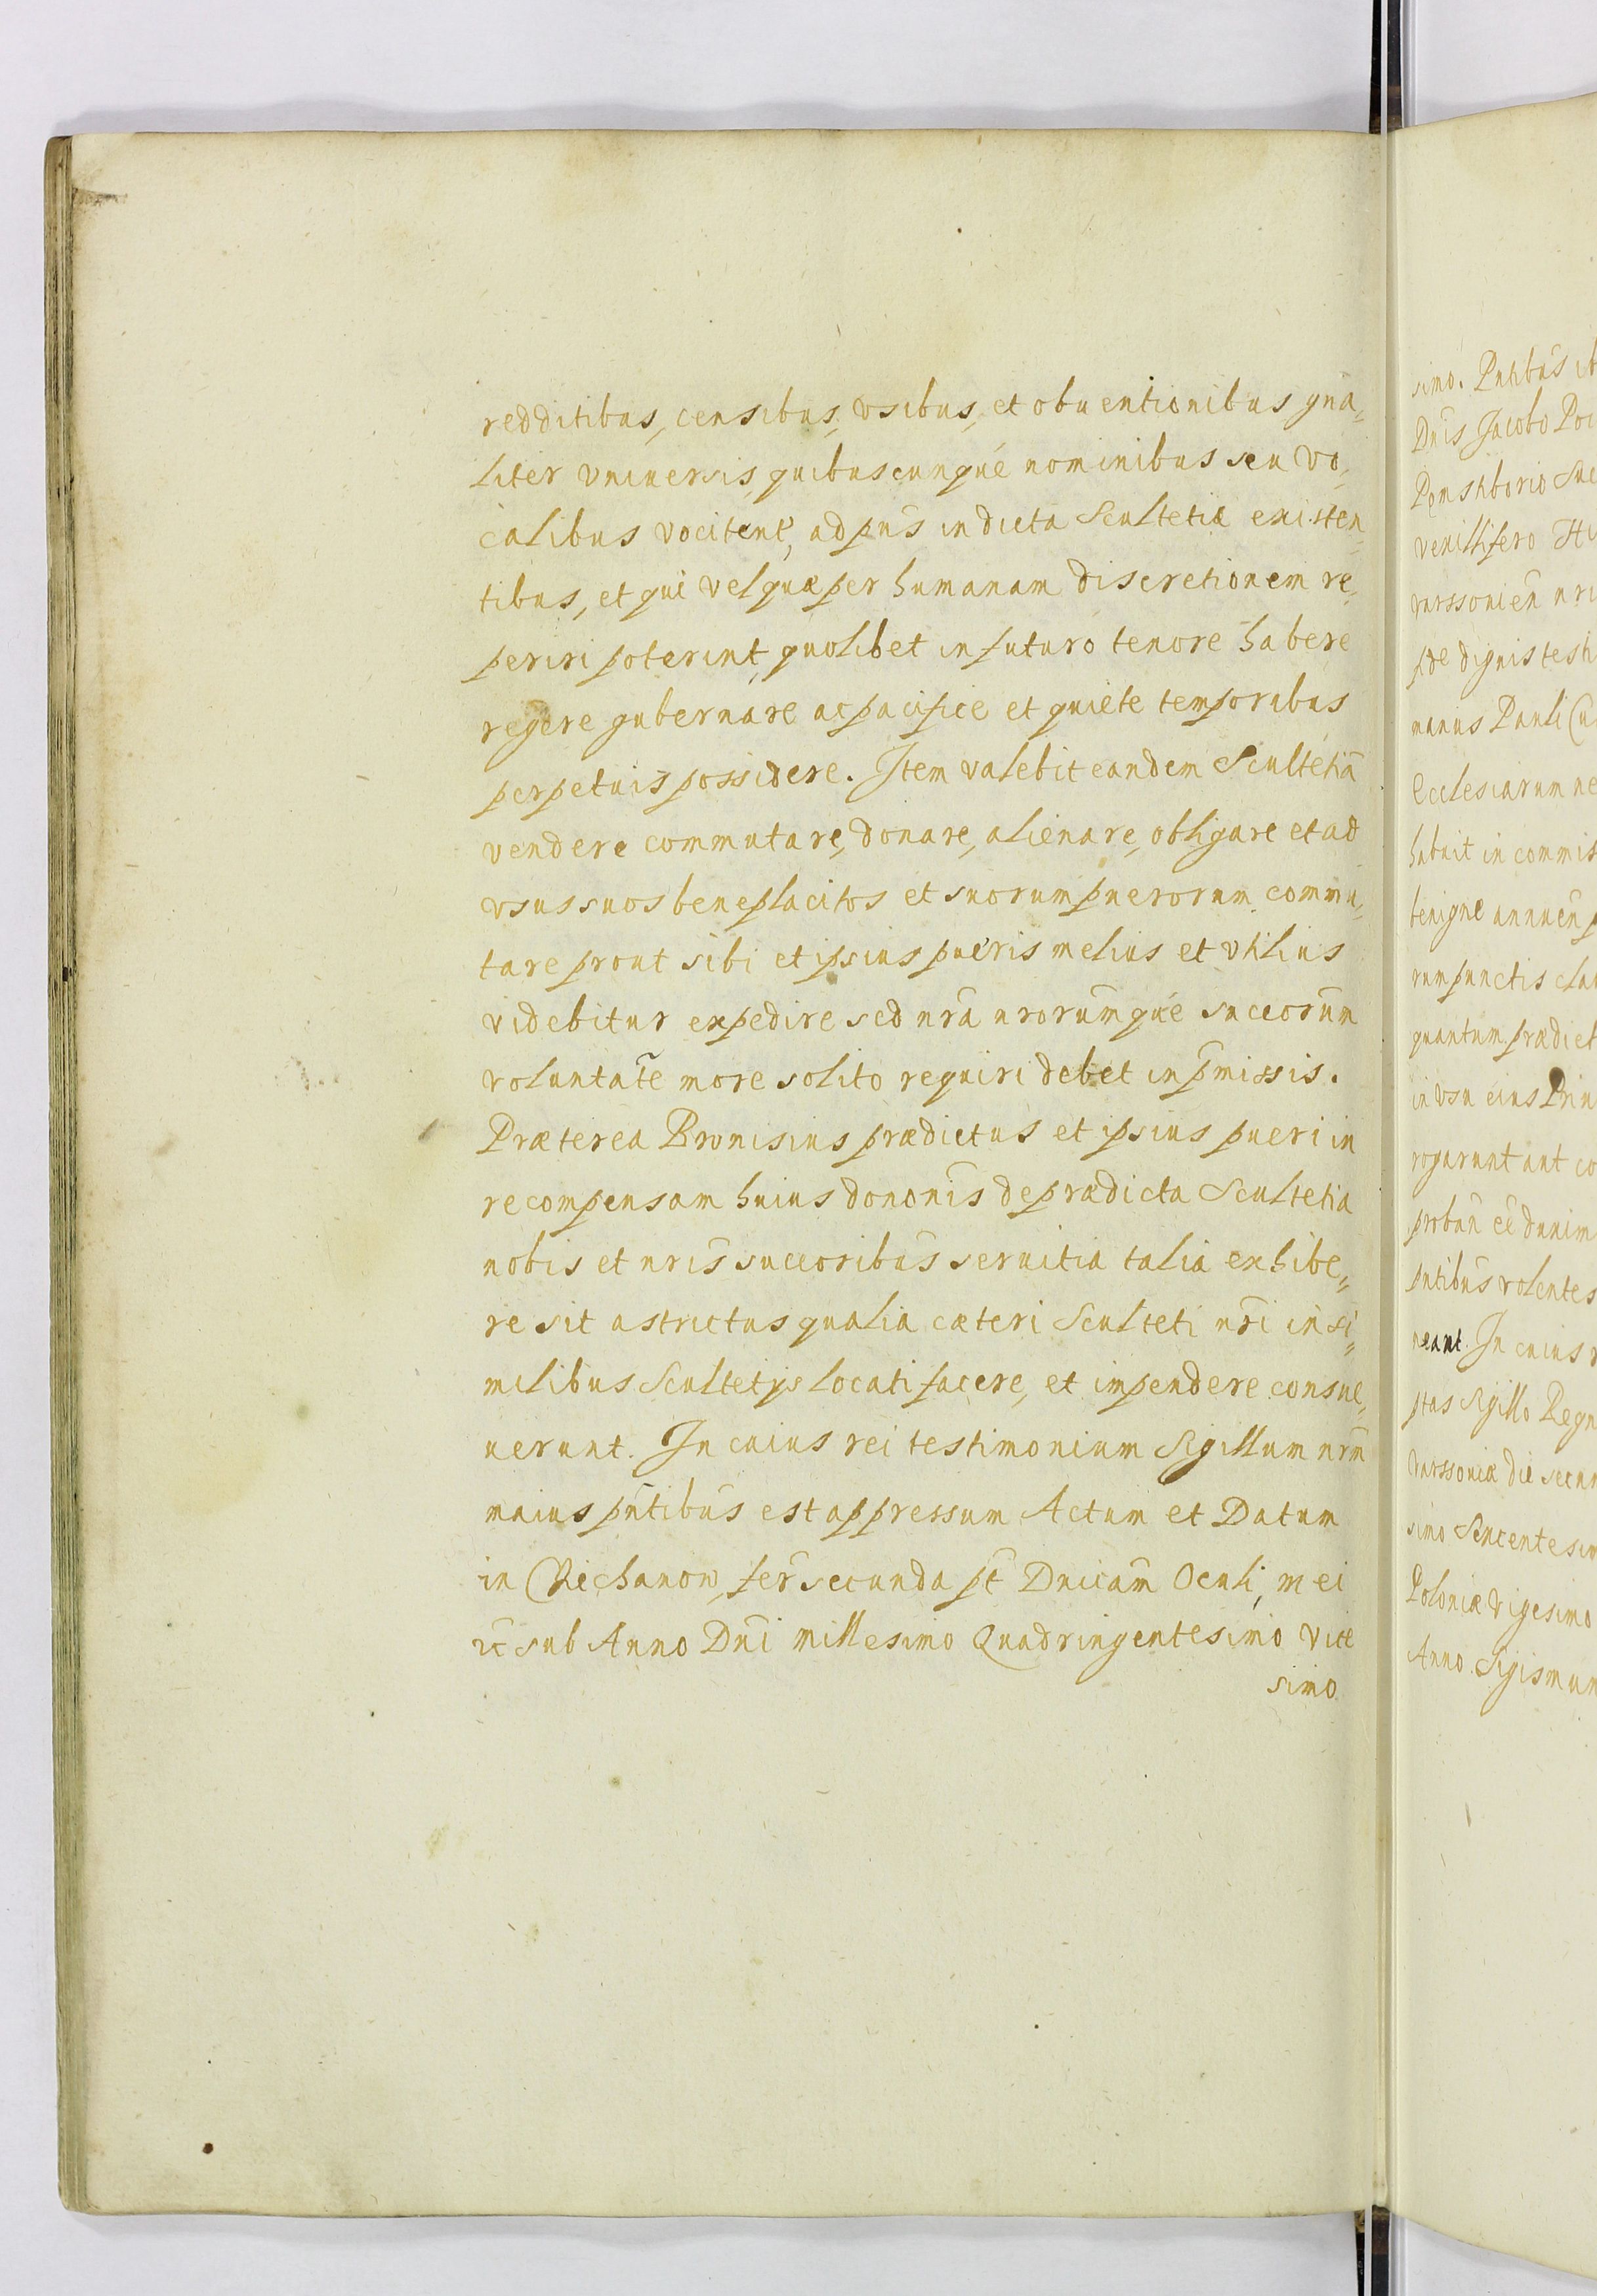 redditibus, censibus, vsibus, et obuentionibus gna„
liter vniuersis, quibuscunqué nominibus seu vo„
calibus vocitent̃, ad pñs in dicta Scultetia existen„
tibus, et qui vel quæ per humanam discretionem re„
periri poterint, quolibet in futuro tenore habere
regere gubernare ac pacifice et quiete temporibus
perpetuis possidere. Item valebit eandem Scultetiã
vendere commutare, donare, alienare, obligare et ad
vsus suos beneplacitos et suorum puerorum commu„
tare prout sibi et ipsius pueris melius et vtilius
videbitur expedire sed nrã nrorum̃qué succorũm
voluntatẽ more solito requiri debet in p̃missis.
Præterea Bronisius prædictus et ipsius pueri in
recompensam huius dononĩs de prædicta Scultetia
nobis et nrĩs succoribũs seruitia talia exhibe„
re sit astrictus qualia cæteri Sculteti nrĩ in si„
milibus Scultetijs locati facere, et impendere consue„
uerunt. In cuius rei testimonium Sigillum nrm̃
maius pñtibũs est appressum Actum et Datum
in Czechanow, fer̃ secunda pt̃ Dnicam̃ Oculi mei
et̃c sub Anno Dnĩ millesimo Quadringentesimo vice
simo
simo. Pntibũs
Dnĩs Jacobo
venillifero
varssonieñ
fide dignis
manus Pauli
Ecclesiarum
habuit in
benigne
rum punctis
quantum
in vsu eius
rogarunt aut
probañ
pntibũs volentes
neant. In cuius
ptas Sigillo
varssoniæ die
simo
Poloniæ vigesimo
Anno